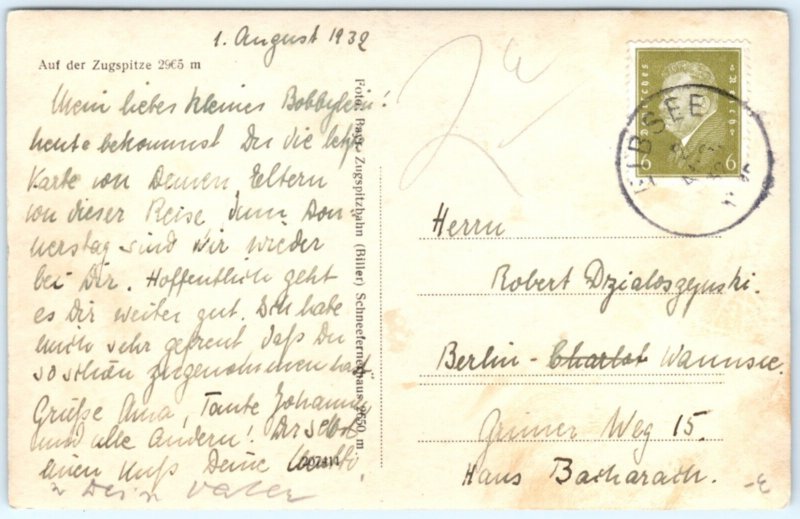 1. August 1932
Auf der Zugspitze 2965 m
Mein liebes kleines Bobbylein!
heute bekommst Du die letzte
Karte von Deinen Eltern
von dieser Reise. Zum Don-
nerstag sind wir wieder
bei Dir. Hoffentlich geht
es Dir weiter gut. Ich habe
mich sehr gefreut daß Du
so schön zugenommen hast
Grüße Ama, Tante Johanna
und alle Andern! Dir selbst
einen Kuß Deine Mutti
u Dein Vater
Foto: Bayr. Zugspitzbahn (Biller) Schneefernerhaus 2650 m
207411
Deutsches Reich
6 6
EIBSEE
Herrn
Robert Dzialoszynski.
Berlin - Charlot Wannsee.
Grüner Weg 15.
Haus Bacharach.